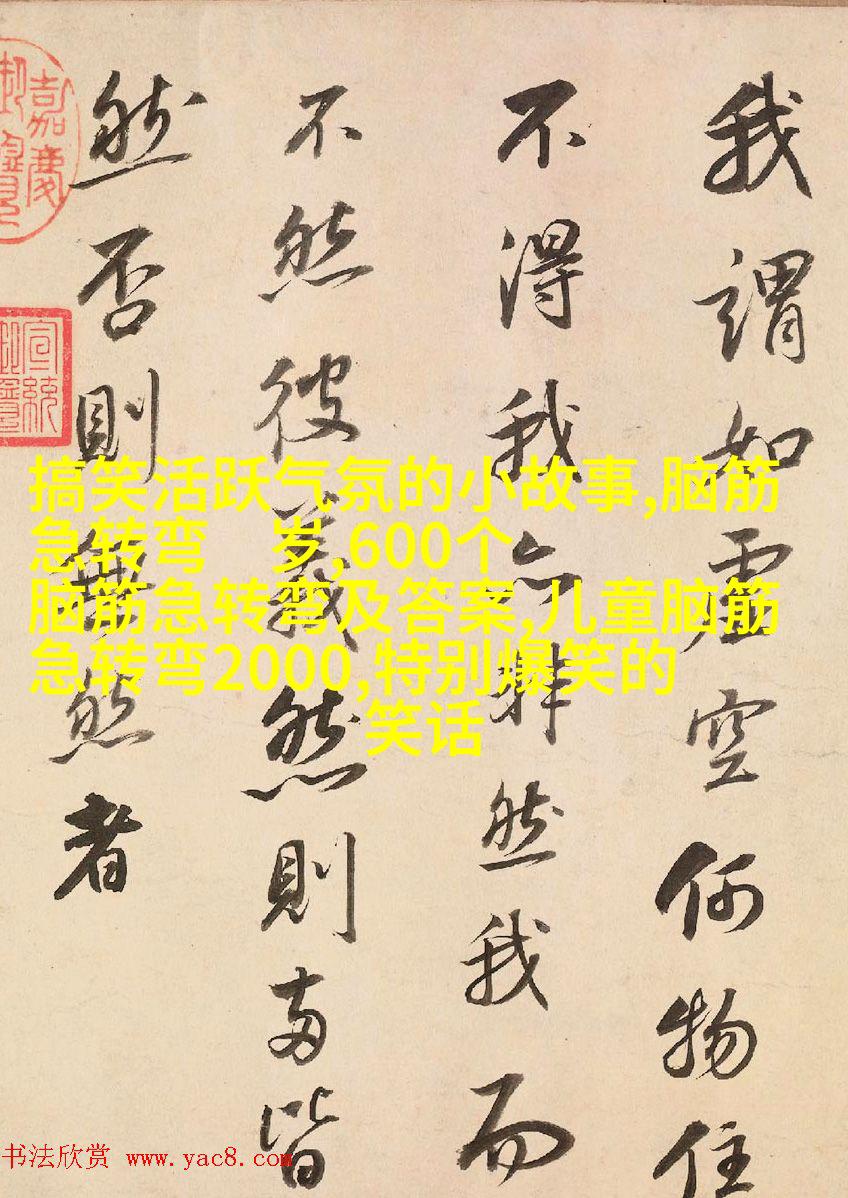 我謂如虛空何物住
不得我亦非然我而
不然彼義然則兩皆
然否則無然者
嘉慶
御覽
宣統
御覽
搞笑活跃气氛的小故事,脑筋
急转弯 岁,600个
脑筋急转弯及答案,儿童脑筋
急转弯2000,特别爆笑的
笑话
书法欣赏 www.yac8.com